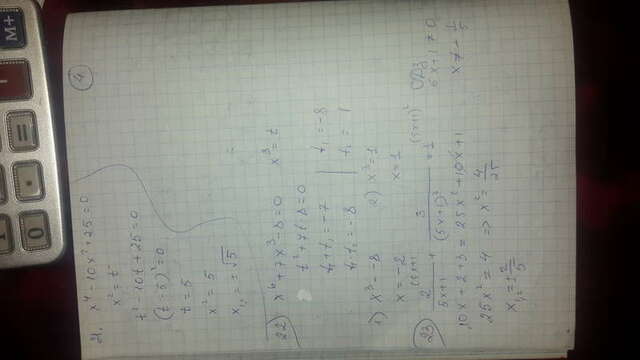 4
21. x⁴-10x²+25=0
x²=t
t²-10t+25=0
(t-5)²=0
t=5
x²=5
x₁,₂=±√5
22 x⁶+7x³-8=0 x³=t
t²+7t-8=0
t₁+t₂=-7 | t₁=-8
t₁·t₂=-8 | t₂=1
1) x³=-8 2) x³=1
x=-2 x=1
23 2/(5x+1) + 3/(5x+1)² = 1 ОДЗ
5x+1≠0
10x+2+3=25x²+10x+1 x≠-1/5
25x²=4 => x²=4/25
x₁,₂=±2/5
M+
=